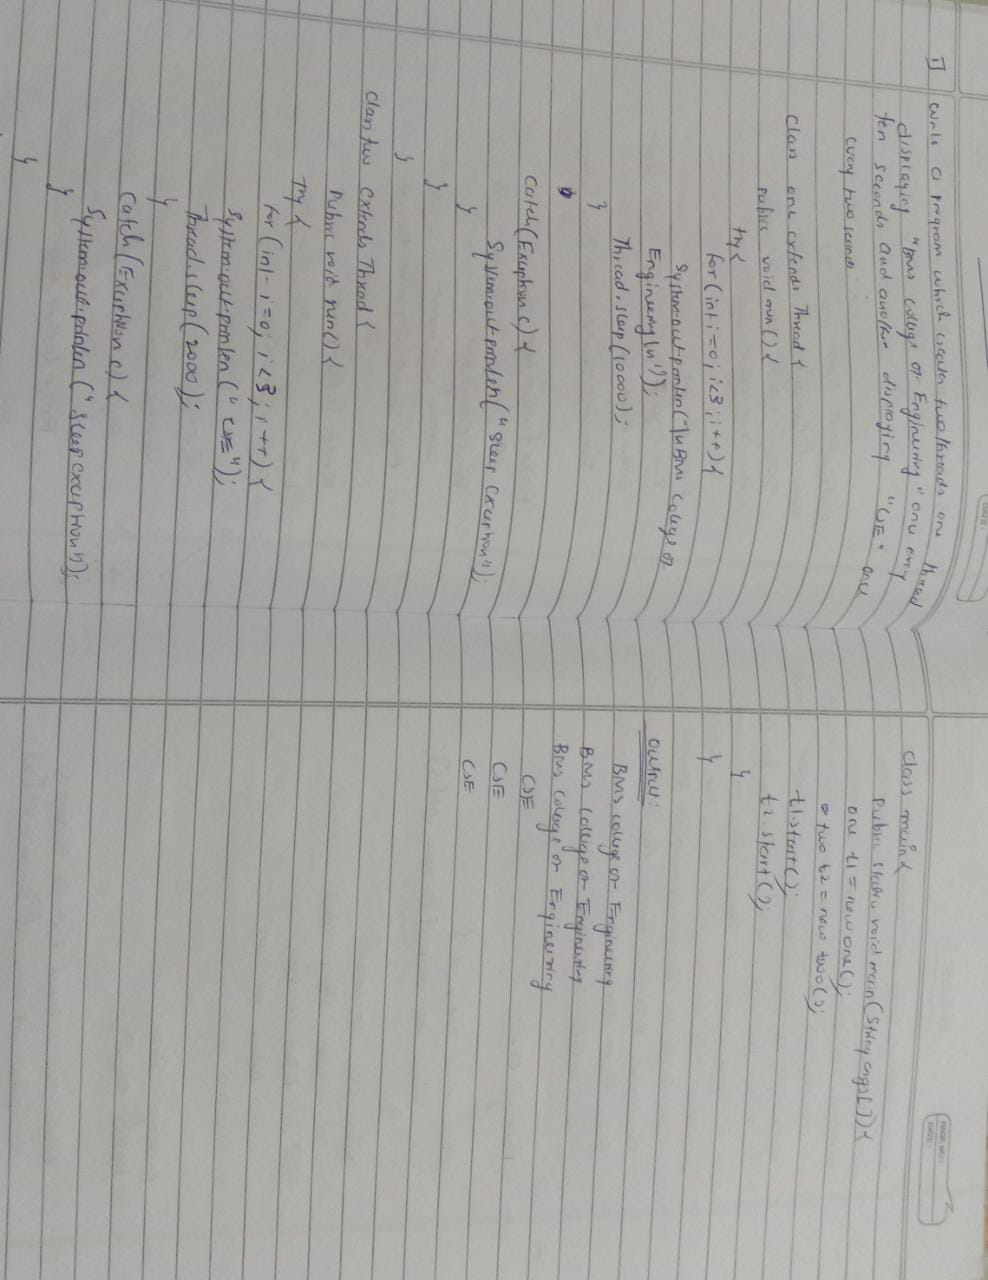 1] Write a program which creates two threads one thread
displaying "BMS College of Engineering" once every
ten seconds and another displaying "CSE" once
every two seconds
class one extends Thread {
public void run() {
try {
for (int i = 0; i<3; i++) {
System.out.println("\n BMS College of
Engineering \n");
Thread.sleep(10000);
}
catch (Exception e) {
System.out.println("sleep exception");
}
}
}
class two extends Thread {
public void run() {
try {
for (int i = 0; i<3; i++) {
System.out.println("CSE");
Thread.sleep(2000);
}
catch (Exception e) {
System.out.println("sleep exception");
}
}
PAGE NO:
DATE:
class main {
public static void main(String args[]) {
one t1 = new one();
two t2 = new two();
t1.start();
t2.start();
}
}
Output:
BMS College of Engineering
BMS College of Engineering
BMS College of Engineering
CSE
CSE
CSE